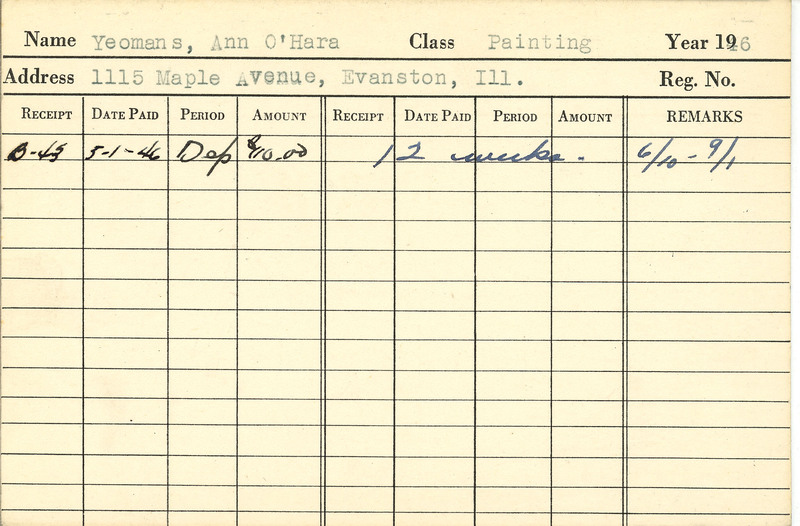 Name Yeomans, Ann O'Hara Class Painting Year 1946
Address 1115 Maple Avenue, Evanston, Ill. Reg. No.
RECEIPT DATE PAID PERIOD AMOUNT RECEIPT DATE PAID PERIOD AMOUNT REMARKS
B-45 5-1-46 Dep $10.00 12 weeks. 6/10-9/1